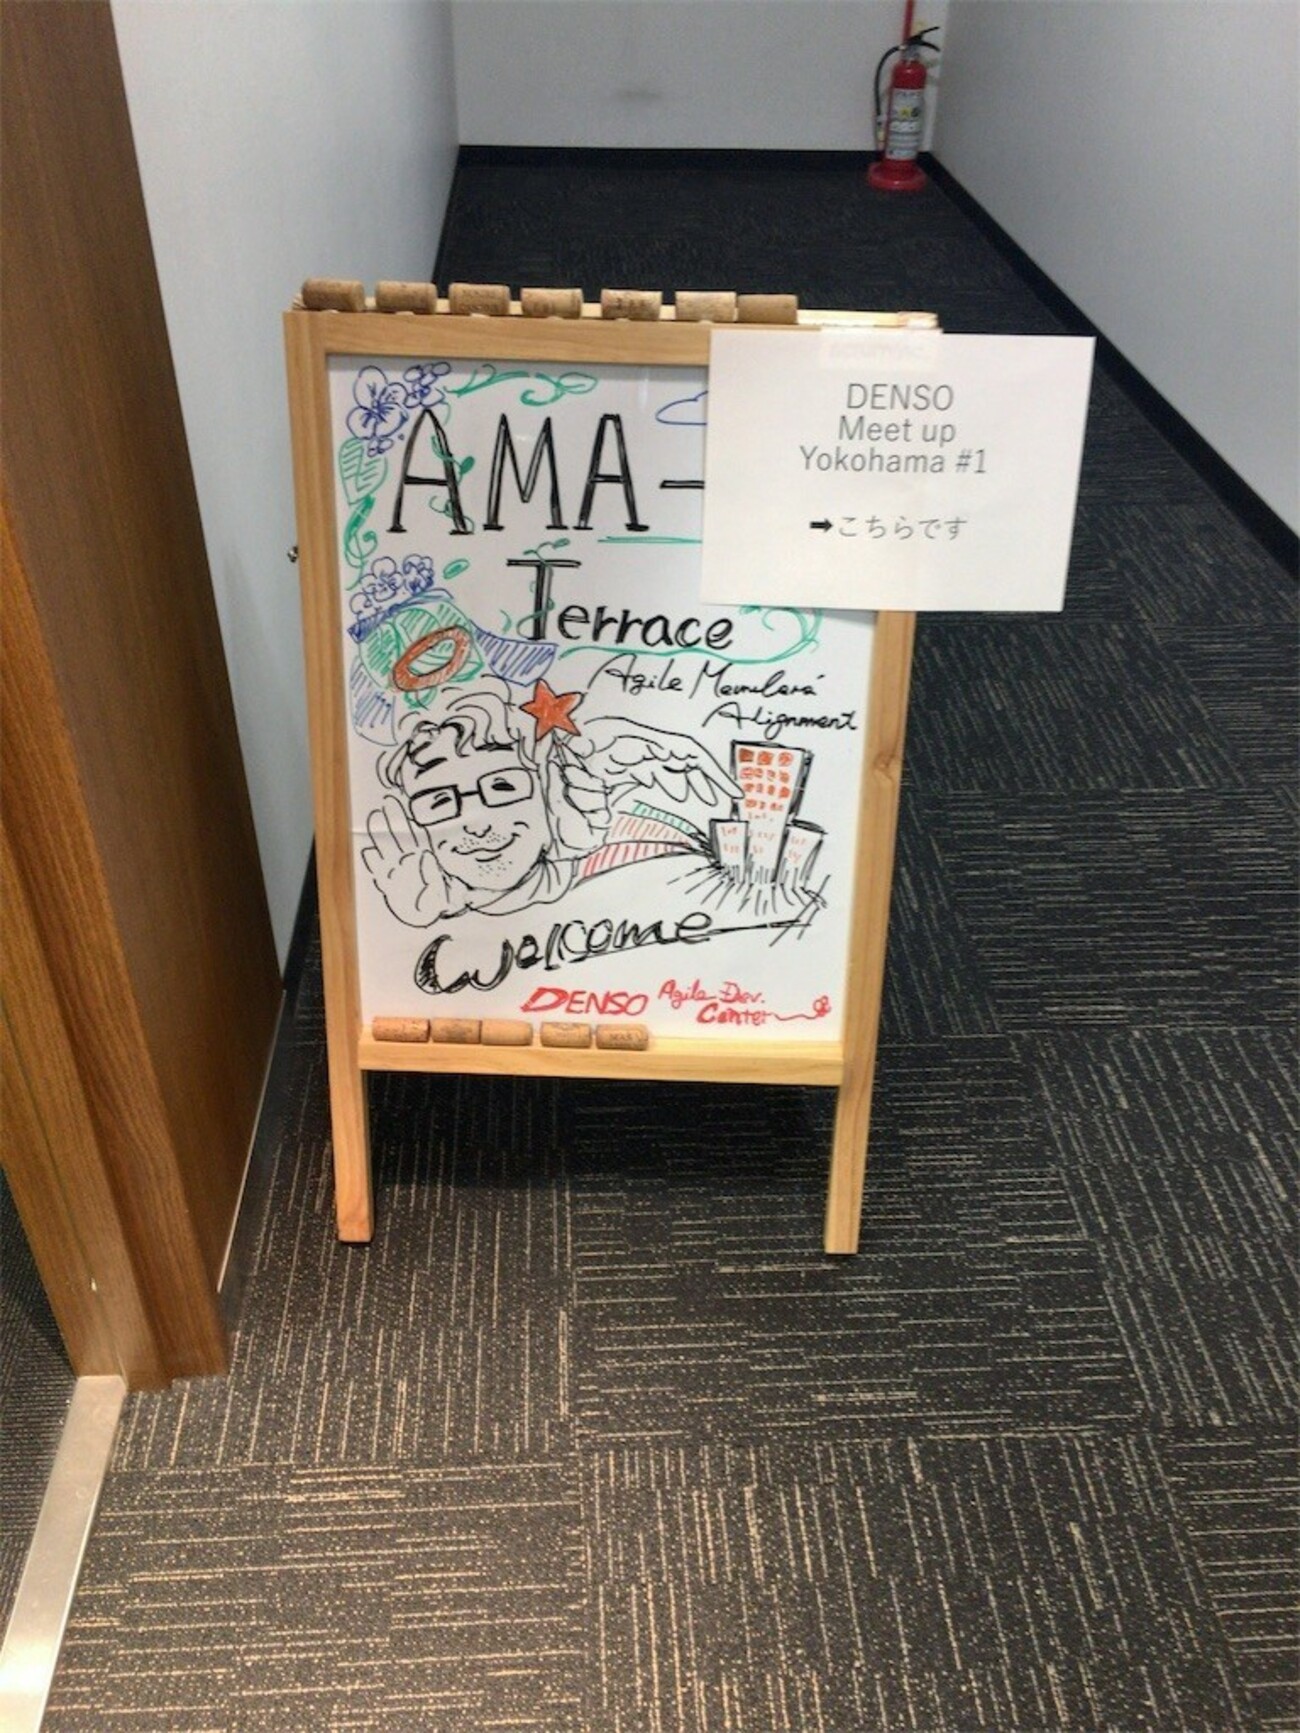 AMA-
Terrace
Agile
Alignment
Welcome
DENSO Agile Dev.
Center
DENSO
Meet up
Yokohama #1
➡こちらです